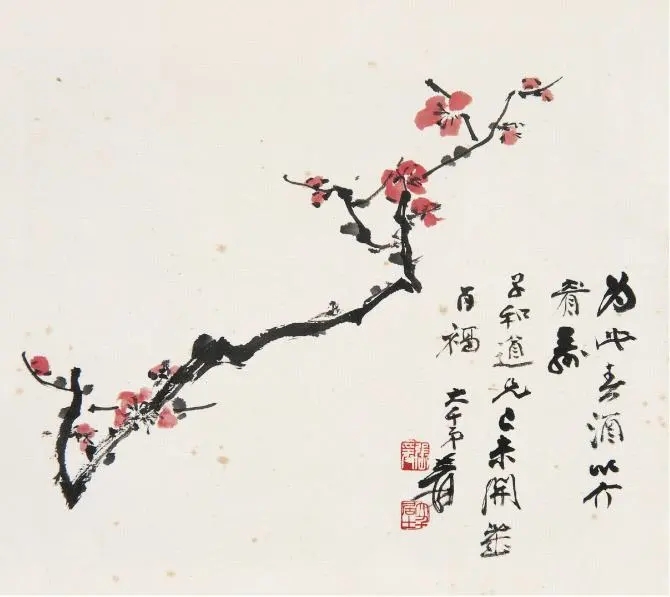 為此春酒以介
眉壽
子和道兄己未開歲
百福
大千弟爰
張爰
大千居士